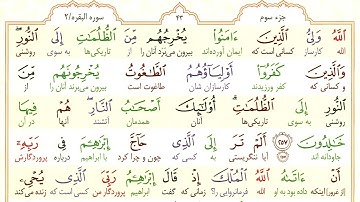 جزء سوم ۴۳ سوره البقره/۲
ٱللَّهُ وَلِيُّ ٱلَّذِينَ ءَامَنُوا۟ يُخْرِجُهُم مِّنَ ٱلظُّلُمَٰتِ إِلَى ٱلنُّورِ
الله کارساز کسانی است که ایمان آورده‌اند بیرون می‌برد آنان را از تاریکی‌ها به سوی روشنی
وَٱلَّذِينَ كَفَرُوٓا۟ أَوْلِيَآؤُهُمُ ٱلطَّٰغُوتُ يُخْرِجُونَهُم مِّنَ
و کسانی که کفر ورزیدند کارسازان شان طاغوت است بیرون می‌برند آنان را از
ٱلنُّورِ إِلَى ٱلظُّلُمَٰتِ أُو۟لَٰٓئِكَ أَصْحَٰبُ ٱلنَّارِ هُمْ فِيهَا
روشنی به سوی تاریکی‌ها آنان همدمان آتشند آنها در آن
خَٰلِدُونَ ۲۵۷ أَلَمْ تَرَ إِلَى ٱلَّذِى حَآجَّ إِبْرَٰهِـۧمَ فِى رَبِّهِۦٓ
جاودانه اند آیا ننگریستی به کسی که چون و چرا کرد با ابراهیم درباره پروردگارش
أَنْ ءَاتَىٰهُ ٱللَّهُ ٱلْمُلْكَ إِذْ قَالَ إِبْرَٰهِـۧمُ رَبِّىَ ٱلَّذِى يُحْىِۦ
اینکه داده بود به او الله فرمانروایی را؟ زمانی که گفت ابراهیم پروردگار من کسی است که زنده می‌کند